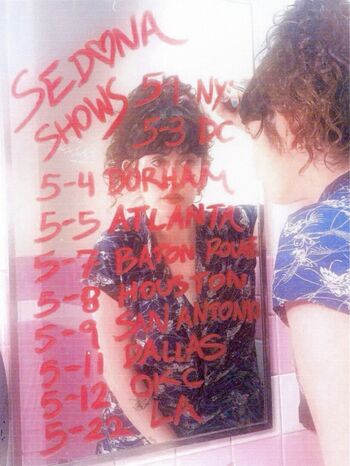 SED♡NA
SHOWS 5-1 NYC
5-3 DC
5-4 DURHAM
5-5 ATLANTA
5-7 BATON ROUGE
5-8 HOUSTON
5-9 SAN ANTONIO
5-11 DALLAS
5-12 OKC
5-22 LA